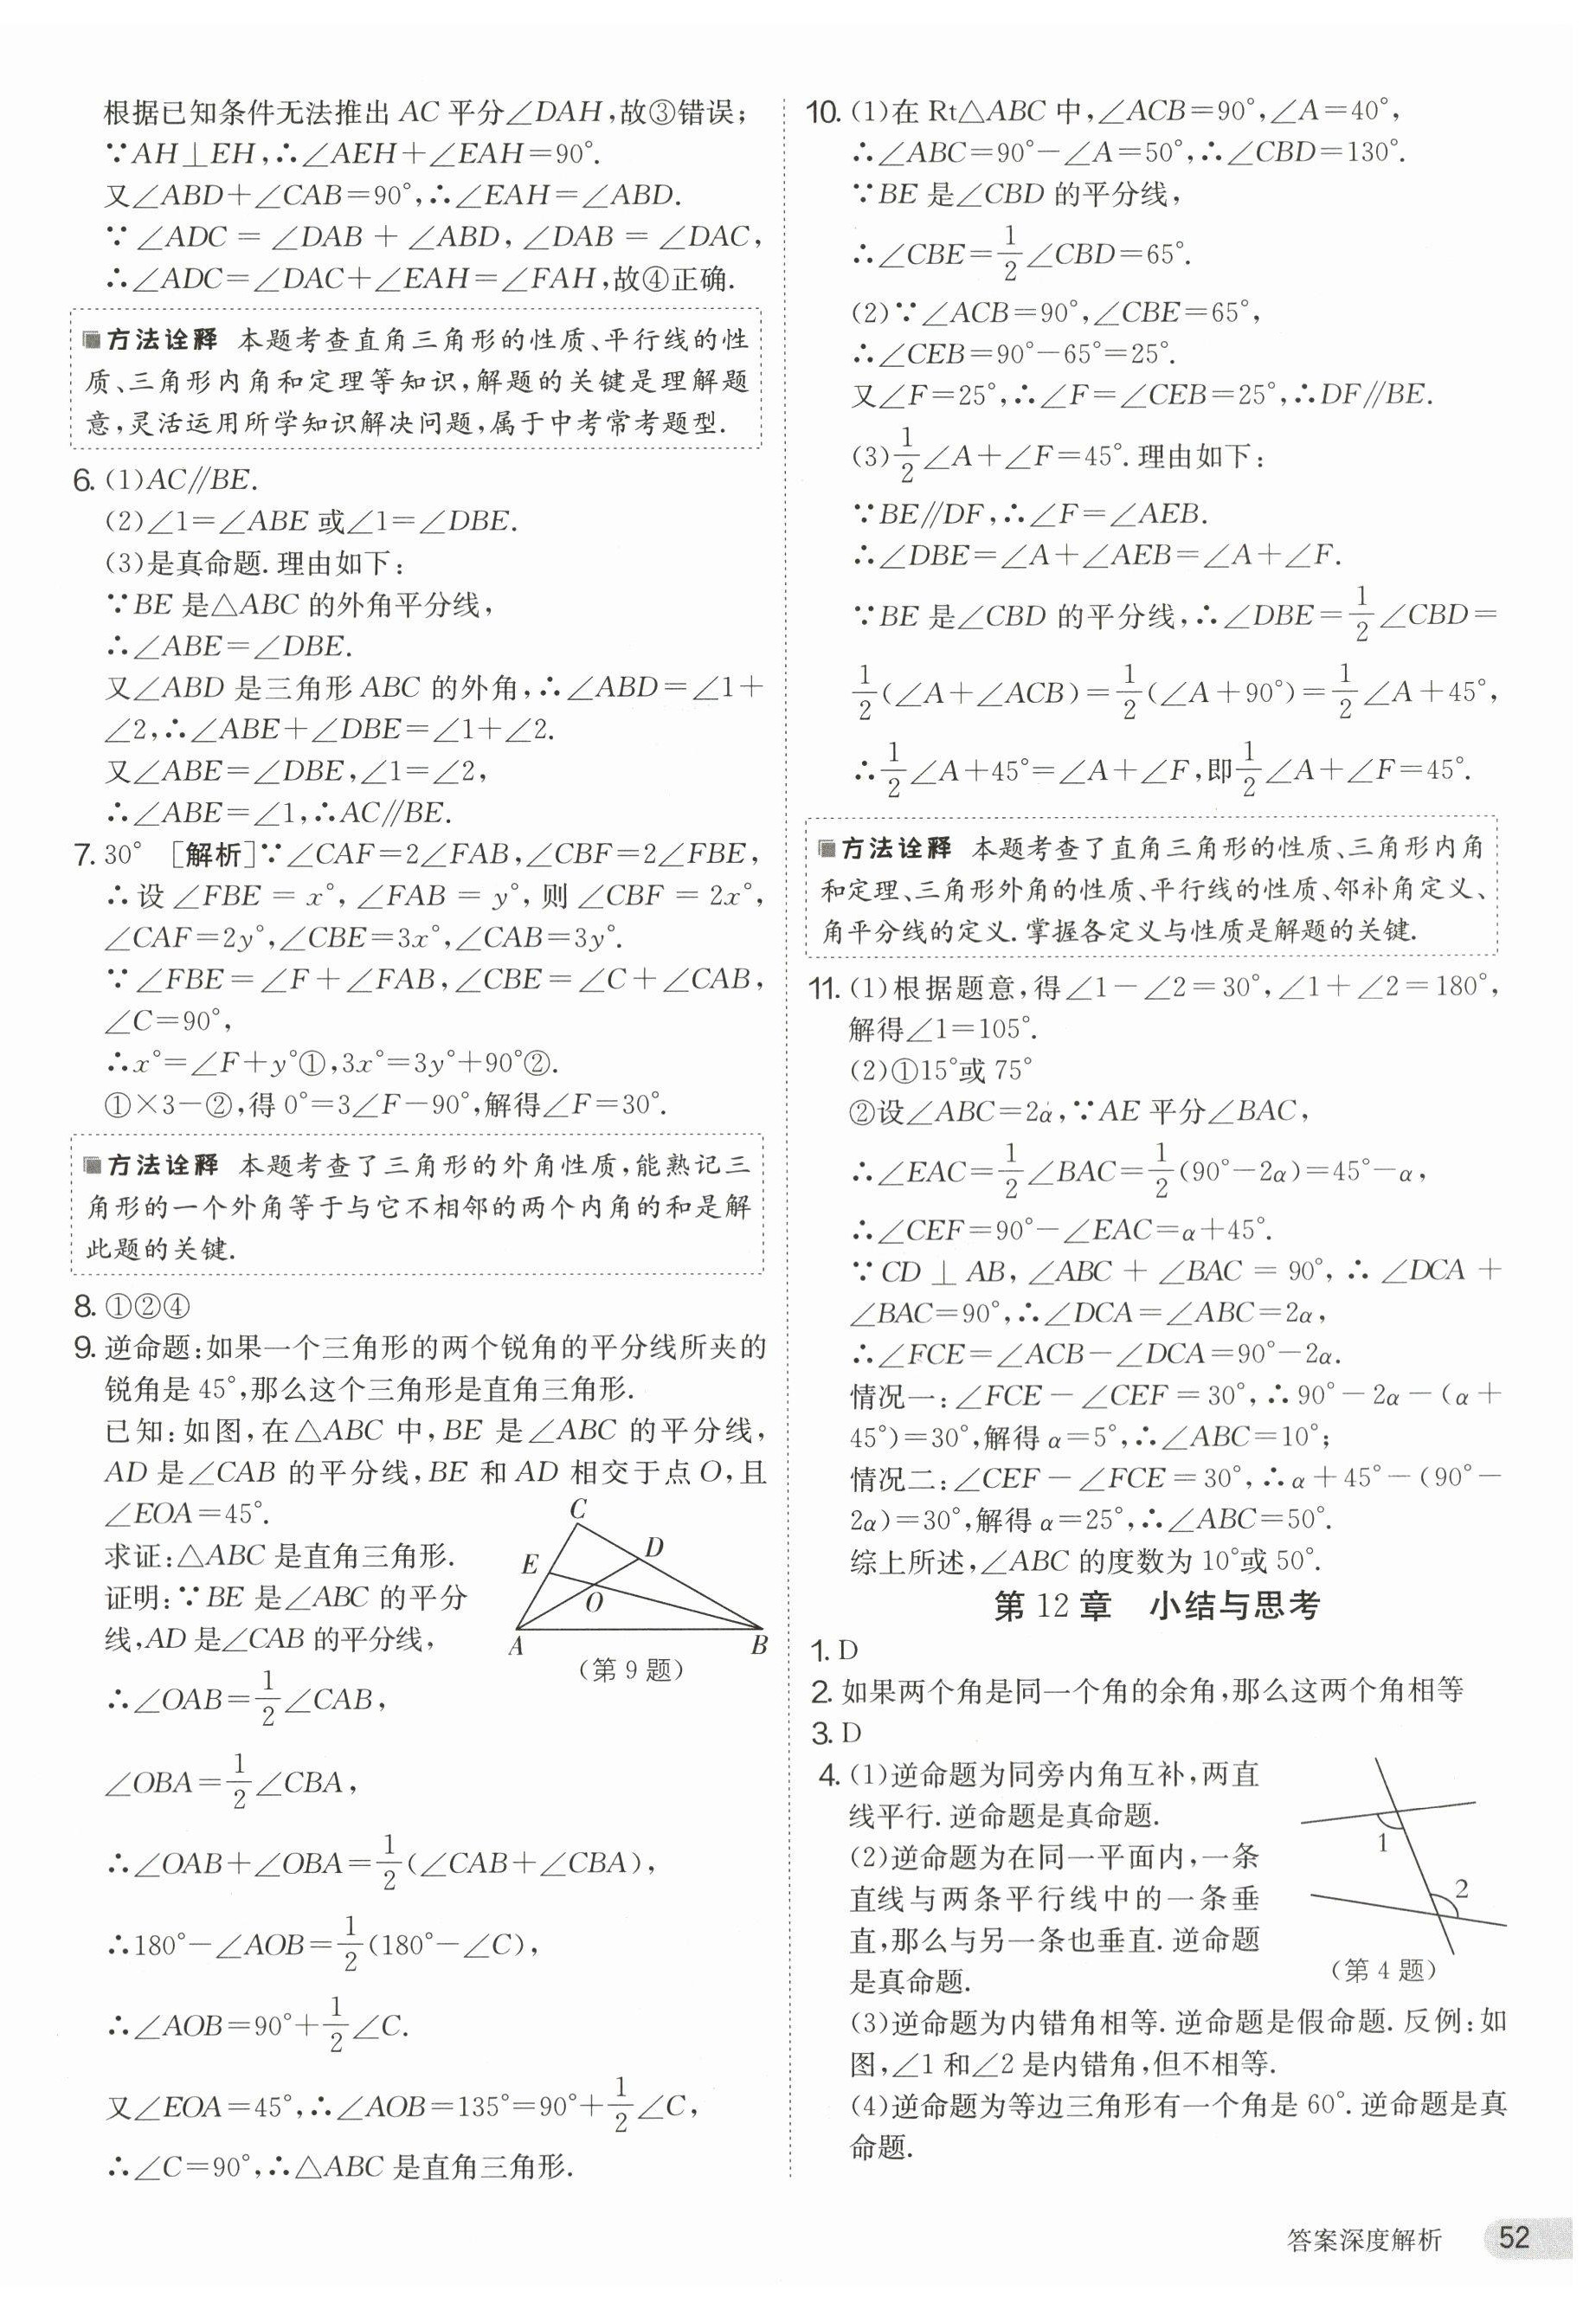 根据已知条件无法推出 AC 平分∠DAH,故③错误;
∵AH⊥EH,∴∠AEH+∠EAH=90°.
又∠ABD+∠CAB=90°,∴∠EAH=∠ABD.
∵∠ADC=∠DAB+∠ABD,∠DAB=∠DAC,
∴∠ADC=∠DAC+∠EAH=∠FAH,故④正确.
方法诠释 本题考查直角三角形的性质、平行线的性
质、三角形内角和定理等知识,解题的关键是理解题
意,灵活运用所学知识解决问题,属于中考常考题型.
6. (1)AC∥BE.
(2)∠1=∠ABE 或∠1=∠DBE.
(3)是真命题. 理由如下:
∵BE 是△ABC 的外角平分线,
∴∠ABE=∠DBE.
又∠ABD 是三角形 ABC 的外角,∴∠ABD=∠1+
∠2,∴∠ABE+∠DBE=∠1+∠2.
又∠ABE=∠DBE,∠1=∠2,
∴∠ABE=∠1,∴AC∥BE.
7. 30° [解析]∵∠CAF=2∠FAB,∠CBF=2∠FBE,
∴设∠FBE=x°,∠FAB=y°,则∠CBF=2x°,
∠CAF=2y°,∠CBE=3x°,∠CAB=3y°.
∵∠FBE=∠F+∠FAB,∠CBE=∠C+∠CAB,
∠C=90°,
∴x°=∠F+y°①,3x°=3y°+90°②.
①×3-②,得 0°=3∠F-90°,解得∠F=30°.
方法诠释 本题考查了三角形的外角性质,能熟记三
角形的一个外角等于与它不相邻的两个内角的和是解
此题的关键.
8. ①②④
9. 逆命题:如果一个三角形的两个锐角的平分线所夹的
锐角是 45°,那么这个三角形是直角三角形.
已知:如图,在△ABC 中,BE 是∠ABC 的平分线,
AD 是∠CAB 的平分线,BE 和 AD 相交于点 O,且
∠EOA=45°.
求证:△ABC 是直角三角形.
证明:∵BE 是∠ABC 的平分
线,AD 是∠CAB 的平分线,
C
D
E
O
A
B
(第 9 题)
∴∠OAB=1/2∠CAB,
∠OBA=1/2∠CBA,
∴∠OAB+∠OBA=1/2(∠CAB+∠CBA),
∴180°-∠AOB=1/2(180°-∠C),
∴∠AOB=90°+1/2∠C.
又∠EOA=45°,∴∠AOB=135°=90°+1/2∠C,
∴∠C=90°,∴△ABC 是直角三角形.
10. (1)在 Rt△ABC 中,∠ACB=90°,∠A=40°,
∴∠ABC=90°-∠A=50°,∴∠CBD=130°.
∵BE 是∠CBD 的平分线,
∴∠CBE=1/2∠CBD=65°.
(2)∵∠ACB=90°,∠CBE=65°,
∴∠CEB=90°-65°=25°.
又∠F=25°,∴∠F=∠CEB=25°,∴DF∥BE.
(3)1/2∠A+∠F=45°. 理由如下:
∵BE∥DF,∴∠F=∠AEB.
∴∠DBE=∠A+∠AEB=∠A+∠F.
∵BE 是∠CBD 的平分线,∴∠DBE=1/2∠CBD=
1/2(∠A+∠ACB)=1/2(∠A+90°)=1/2∠A+45°,
∴1/2∠A+45°=∠A+∠F,即1/2∠A+∠F=45°.
方法诠释 本题考查了直角三角形的性质、三角形内角
和定理、三角形外角的性质、平行线的性质、邻补角定义、
角平分线的定义. 掌握各定义与性质是解题的关键.
11. (1)根据题意,得∠1-∠2=30°,∠1+∠2=180°,
解得∠1=105°.
(2)①15°或 75°
②设∠ABC=2α,∵AE 平分∠BAC,
∴∠EAC=1/2∠BAC=1/2(90°-2α)=45°-α,
∴∠CEF=90°-∠EAC=α+45°.
∵CD⊥AB,∠ABC+∠BAC=90°,∴∠DCA+
∠BAC=90°,∴∠DCA=∠ABC=2α,
∴∠FCE=∠ACB-∠DCA=90°-2α.
情况一:∠FCE-∠CEF=30°,∴90°-2α-(α+
45°)=30°,解得 α=5°,∴∠ABC=10°;
情况二:∠CEF-∠FCE=30°,∴α+45°-(90°-
2α)=30°,解得 α=25°,∴∠ABC=50°.
综上所述,∠ABC 的度数为 10°或 50°.
第 12 章 小结与思考
1. D
2. 如果两个角是同一个角的余角,那么这两个角相等
3. D
4. (1)逆命题为同旁内角互补,两直
线平行. 逆命题是真命题.
(2)逆命题为在同一平面内,一条
直线与两条平行线中的一条垂
直,那么与另一条也垂直. 逆命题
是真命题.
1
2
(第 4 题)
(3)逆命题为内错角相等. 逆命题是假命题. 反例:如
图,∠1 和∠2 是内错角,但不相等.
(4)逆命题为等边三角形有一个角是 60°. 逆命题是真
命题.
答案深度解析 52